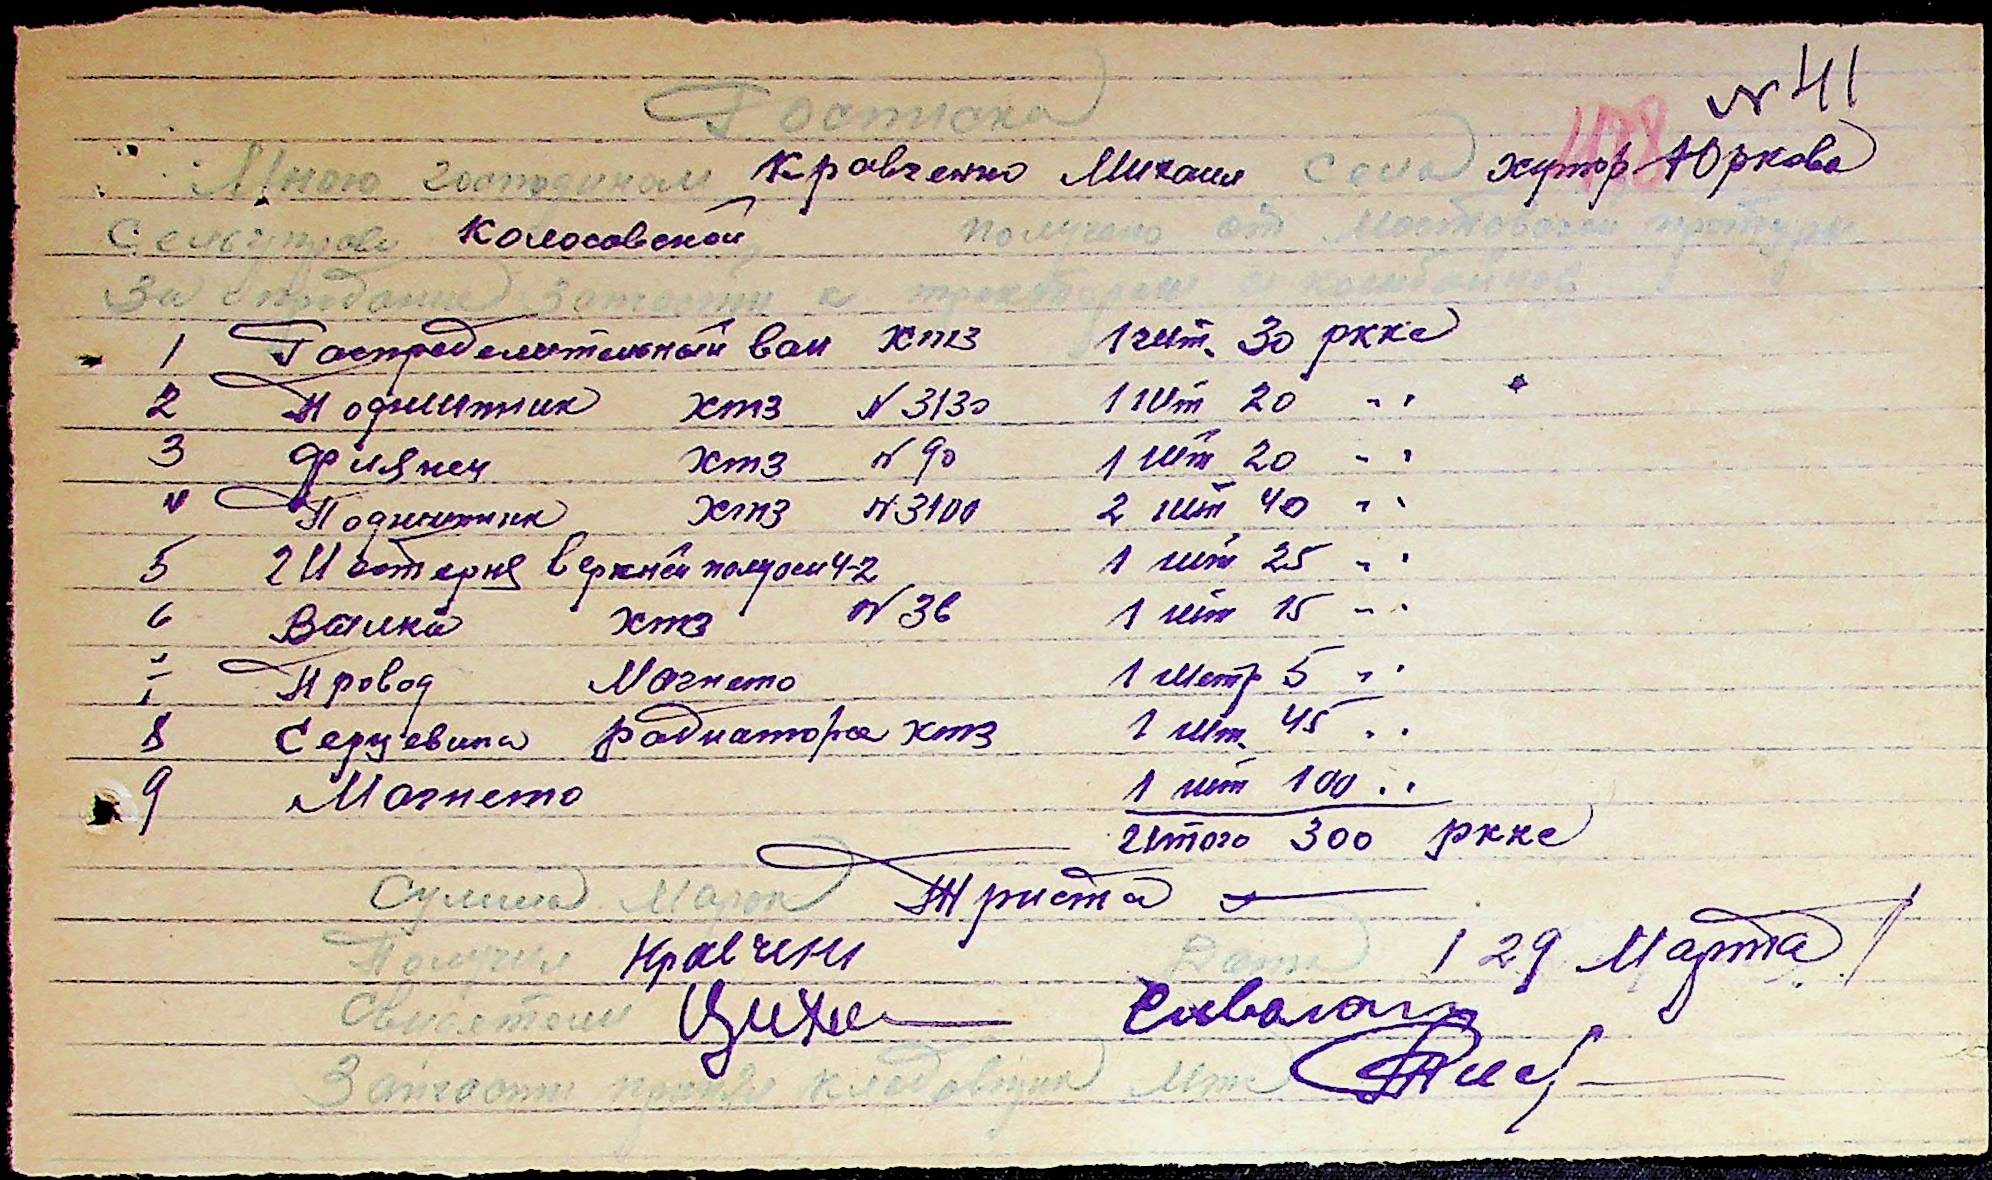 № 41
Росписка
128
Мною господином Кравченко Михаил села хутор Юркова
Сельуправи Колосовской, получено от Мостовской
За сдание запчасти к тракторам и комбайнов
1 Распределительный вал ХТЗ 1 шт. 30 ркке
2 Подшипник ХТЗ N 3130 1 шт 20 " "
3 Флянец ХТЗ N 90 1 шт 20 " "
4 Подшипник ХТЗ N 3100 2 шт 40 " "
5 Шестерня верхней полуоси ч-2 1 шт 25 " "
6 Валика ХТЗ N 36 1 шт 15 " "
7 Провод Магнето 1 метр 5 " "
8 Серцевина радиатора ХТЗ 1 шт. 45 " "
9 Магнето 1 шт 100 " "
Итого 300 ркке
Сумма Марок Триста
Получил Кравчен Дата 29 Марта
Свидетели
Запчасти принял кладовщик Мтс